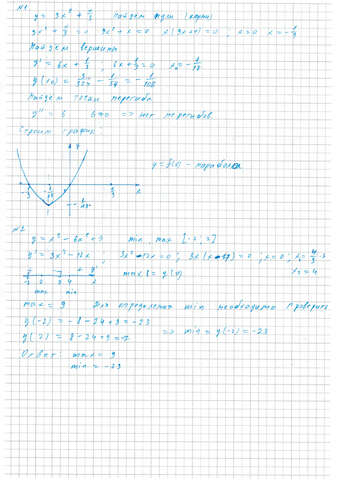 №1
y = 3x² + x/3 найдем нули (корни)
3x² + x/3 = 0 9x² + x = 0 x(9x+1) = 0 , x=0 x = -1/9
Найдем вершины
y' = 6x + 1/3 , 6x + 1/3 = 0 x₀ = -1/18
y(x₀) = 3/324 - 1/54 = - 1/108
Найдем точки перегиба
y'' = 6 6≠0 => нет перегибов
Строим график:
y
y = f(x) - парабола
x
№2
y = x³ - 6x² + 9 min, max [-2; 2]
y' = 3x² - 12x 3x² - 12x = 0 ; 3x(x-4) = 0 ; x = 0 ;
x₂ = 4
max min
max = 9 Для определения min необходимо проверить
y(-2) = -8 - 24 + 9 = -23
=> min = y(-2) = -23
y(2) = 8 - 24 + 9 = -7
Ответ: max = 9
min = -23